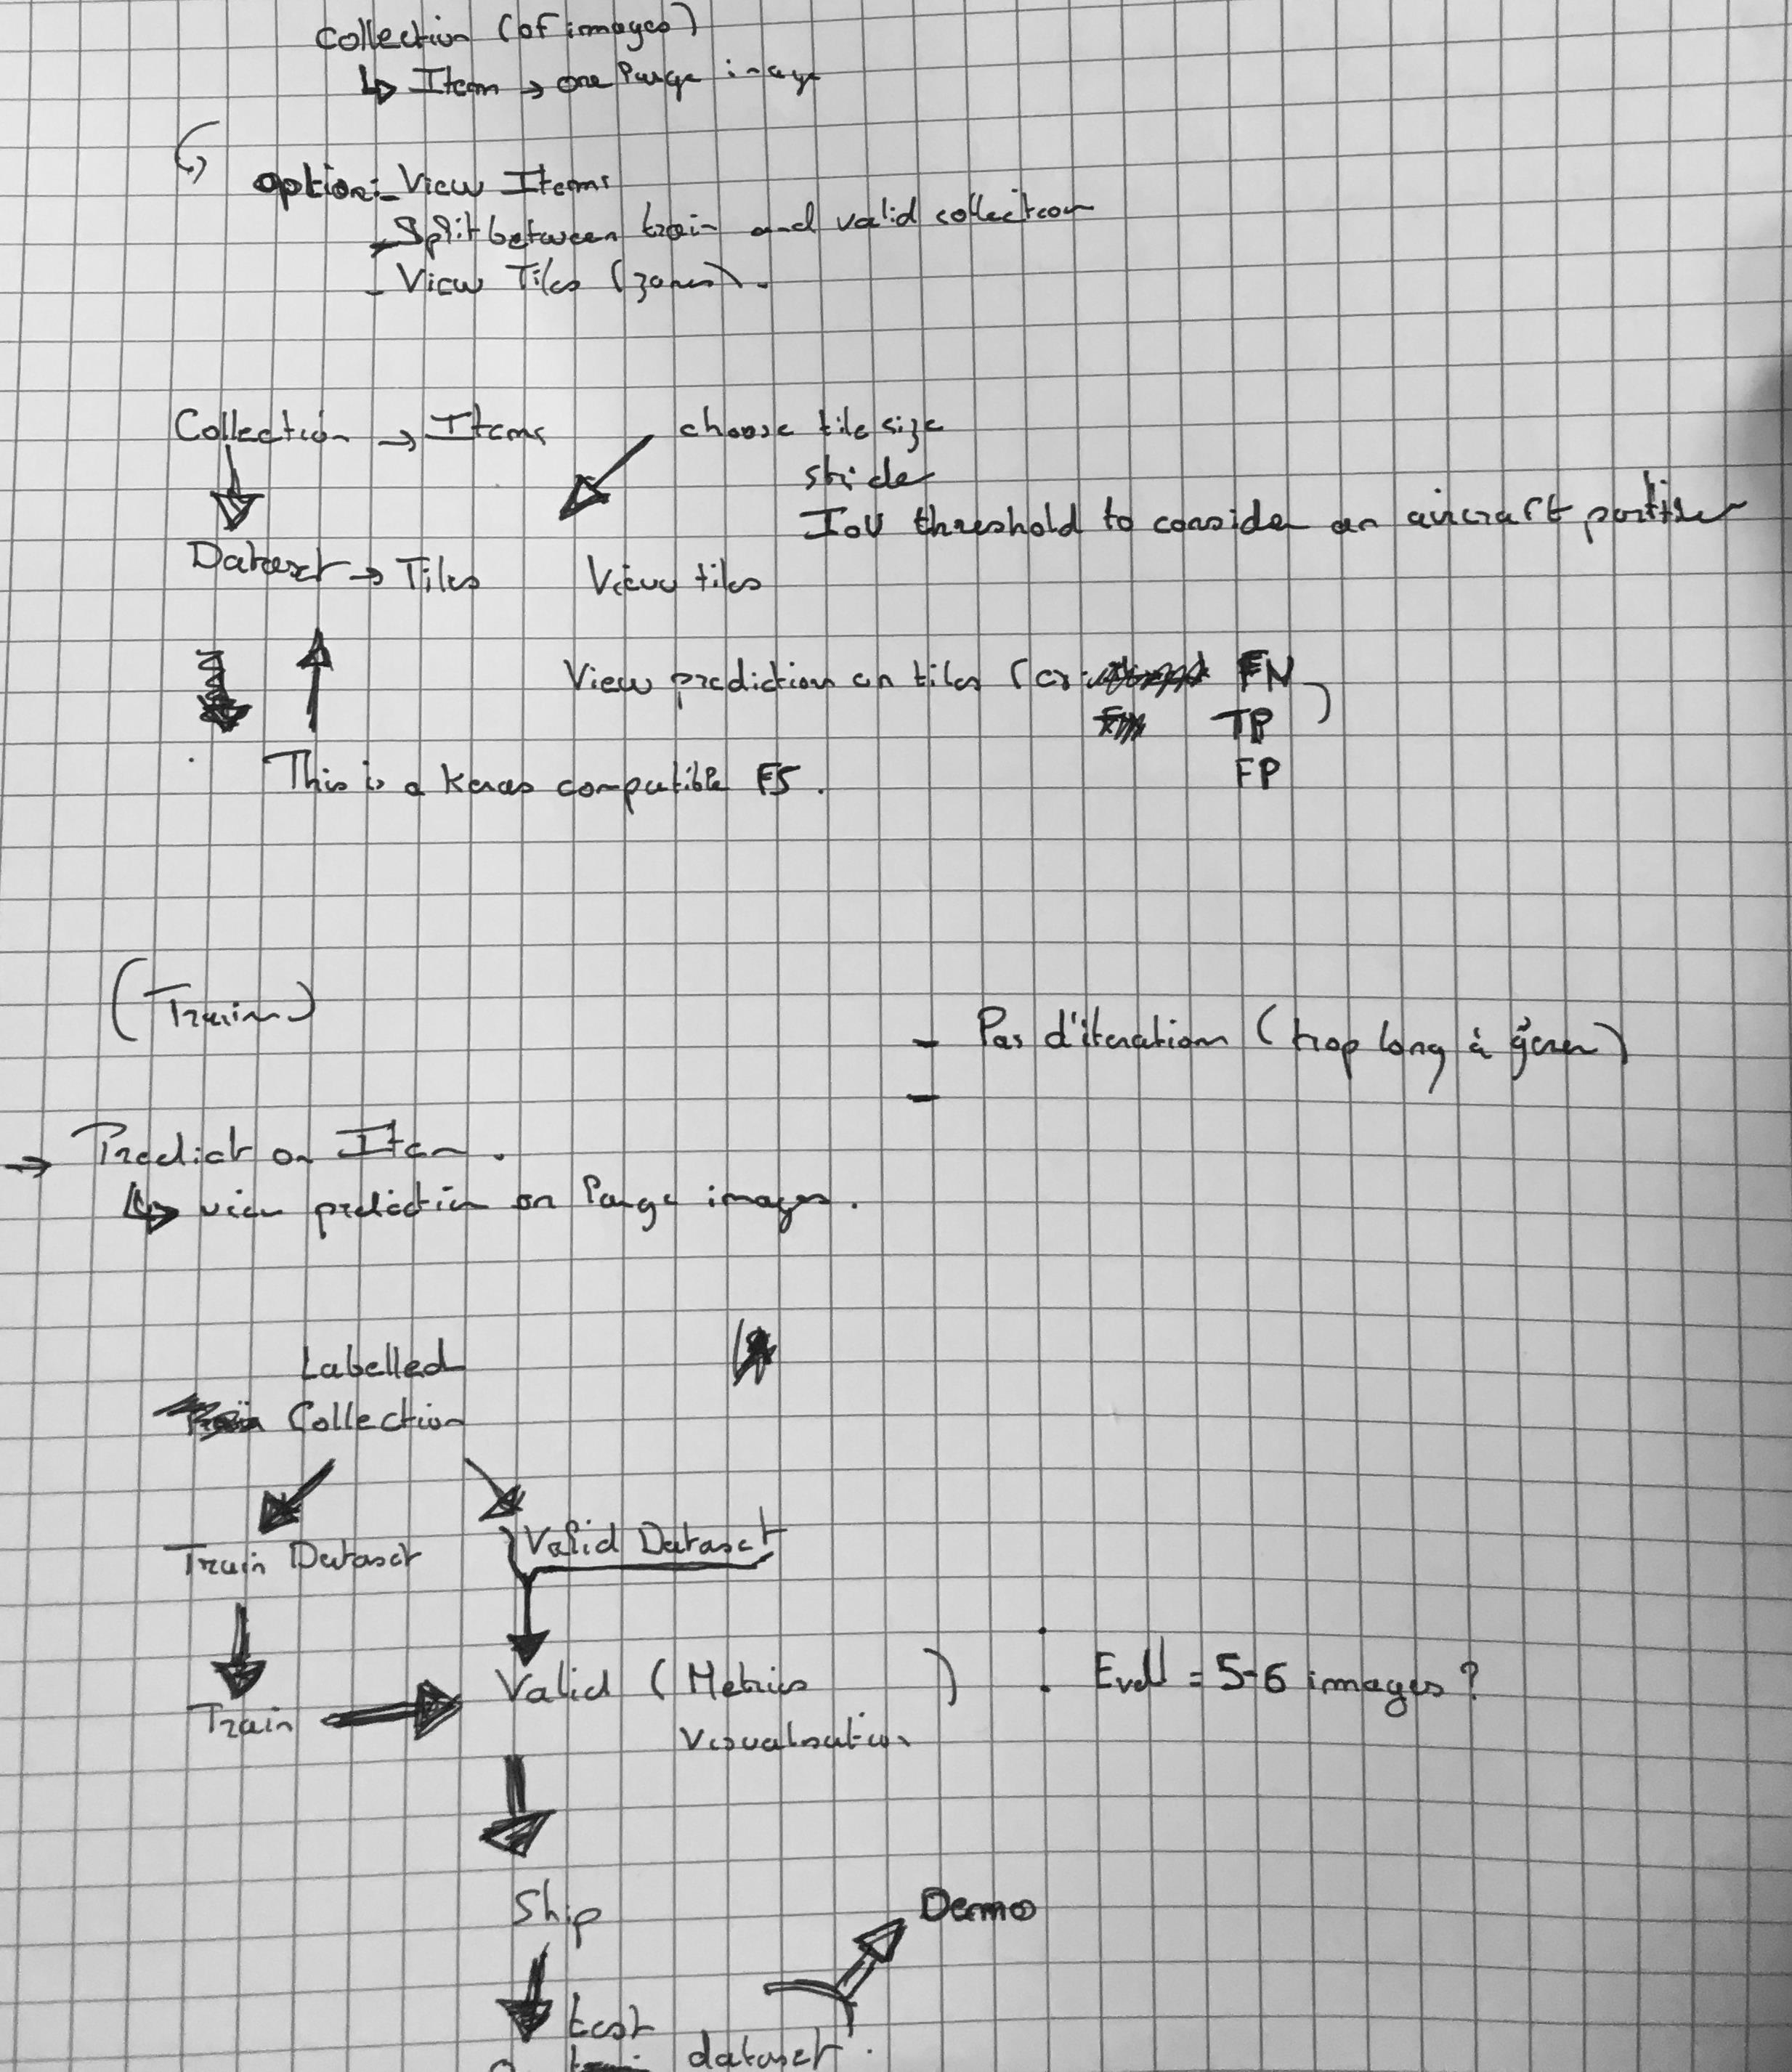 Collection (of images)
↳ Item → one large image
option: - View Items
- Split between train and valid collection
- View Tiles (zones).
Collection → Items
choose tile size
stride
IoU threshold to consider an aircraft positive
Dataset → Tiles
View tiles
View prediction on tiles ( FN
TP )
FP
This is a Keras compatible FS.
(Train)
- Pas d'iteration (trop long à gérer)
-
→ Predict on Item.
↳ view prediction on large images.
Labelled
Collection
Train Dataset
Valid Dataset
Train
Valid (Metrics )
Visualisation
Eval = 5-6 images ?
Ship
Demo
test
dataset.